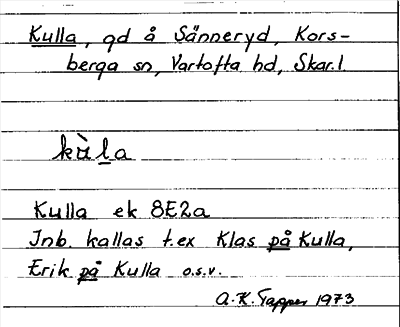 Kulla, gd å Sänneryd, Kors-
berga sn, Vartofta hd, Skar.l.
kùl̲a
Kulla ek 8E2a
Inb. kallas t.ex Klas på Kulla,
Erik på Kulla o.s.v.
A.K. Tapper 1973